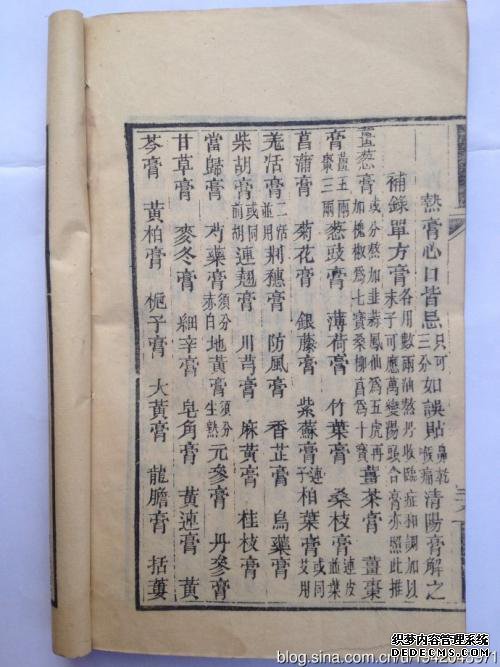 熱膏心口皆忌只可三分如誤貼鼻乾喉痛清陽膏解之
補錄單方膏各用數兩油熬丹收臨症和調加以末子可應萬變陽頭合膏亦照此推
薑葱膏或分熬加韭蒜鳳仙為五虎再加槐椒為七寶桑柳菖為十寶薑茶膏 薑棗
膏薑五兩棗三兩葱豉膏 薄荷膏 竹葉膏 桑枝膏連皮並葉
菖蒲膏 菊花膏 銀藤膏 紫蘇膏連子柏葉膏或同艾用
羌活膏二活並用荆穗膏 防風膏 香芷膏 烏藥膏
柴胡膏或同前胡連翹膏 川芎膏 麻黃膏 桂枝膏
當歸膏 芍藥膏須分赤白地黃膏須分生熟元參膏 丹參膏
甘草膏 麥冬膏 細辛膏 皂角膏 黃連膏 黃
芩膏 黃柏膏 梔子膏 大黃膏 龍膽膏 括蔞
织梦内容管理系统
DEDECMS.COM